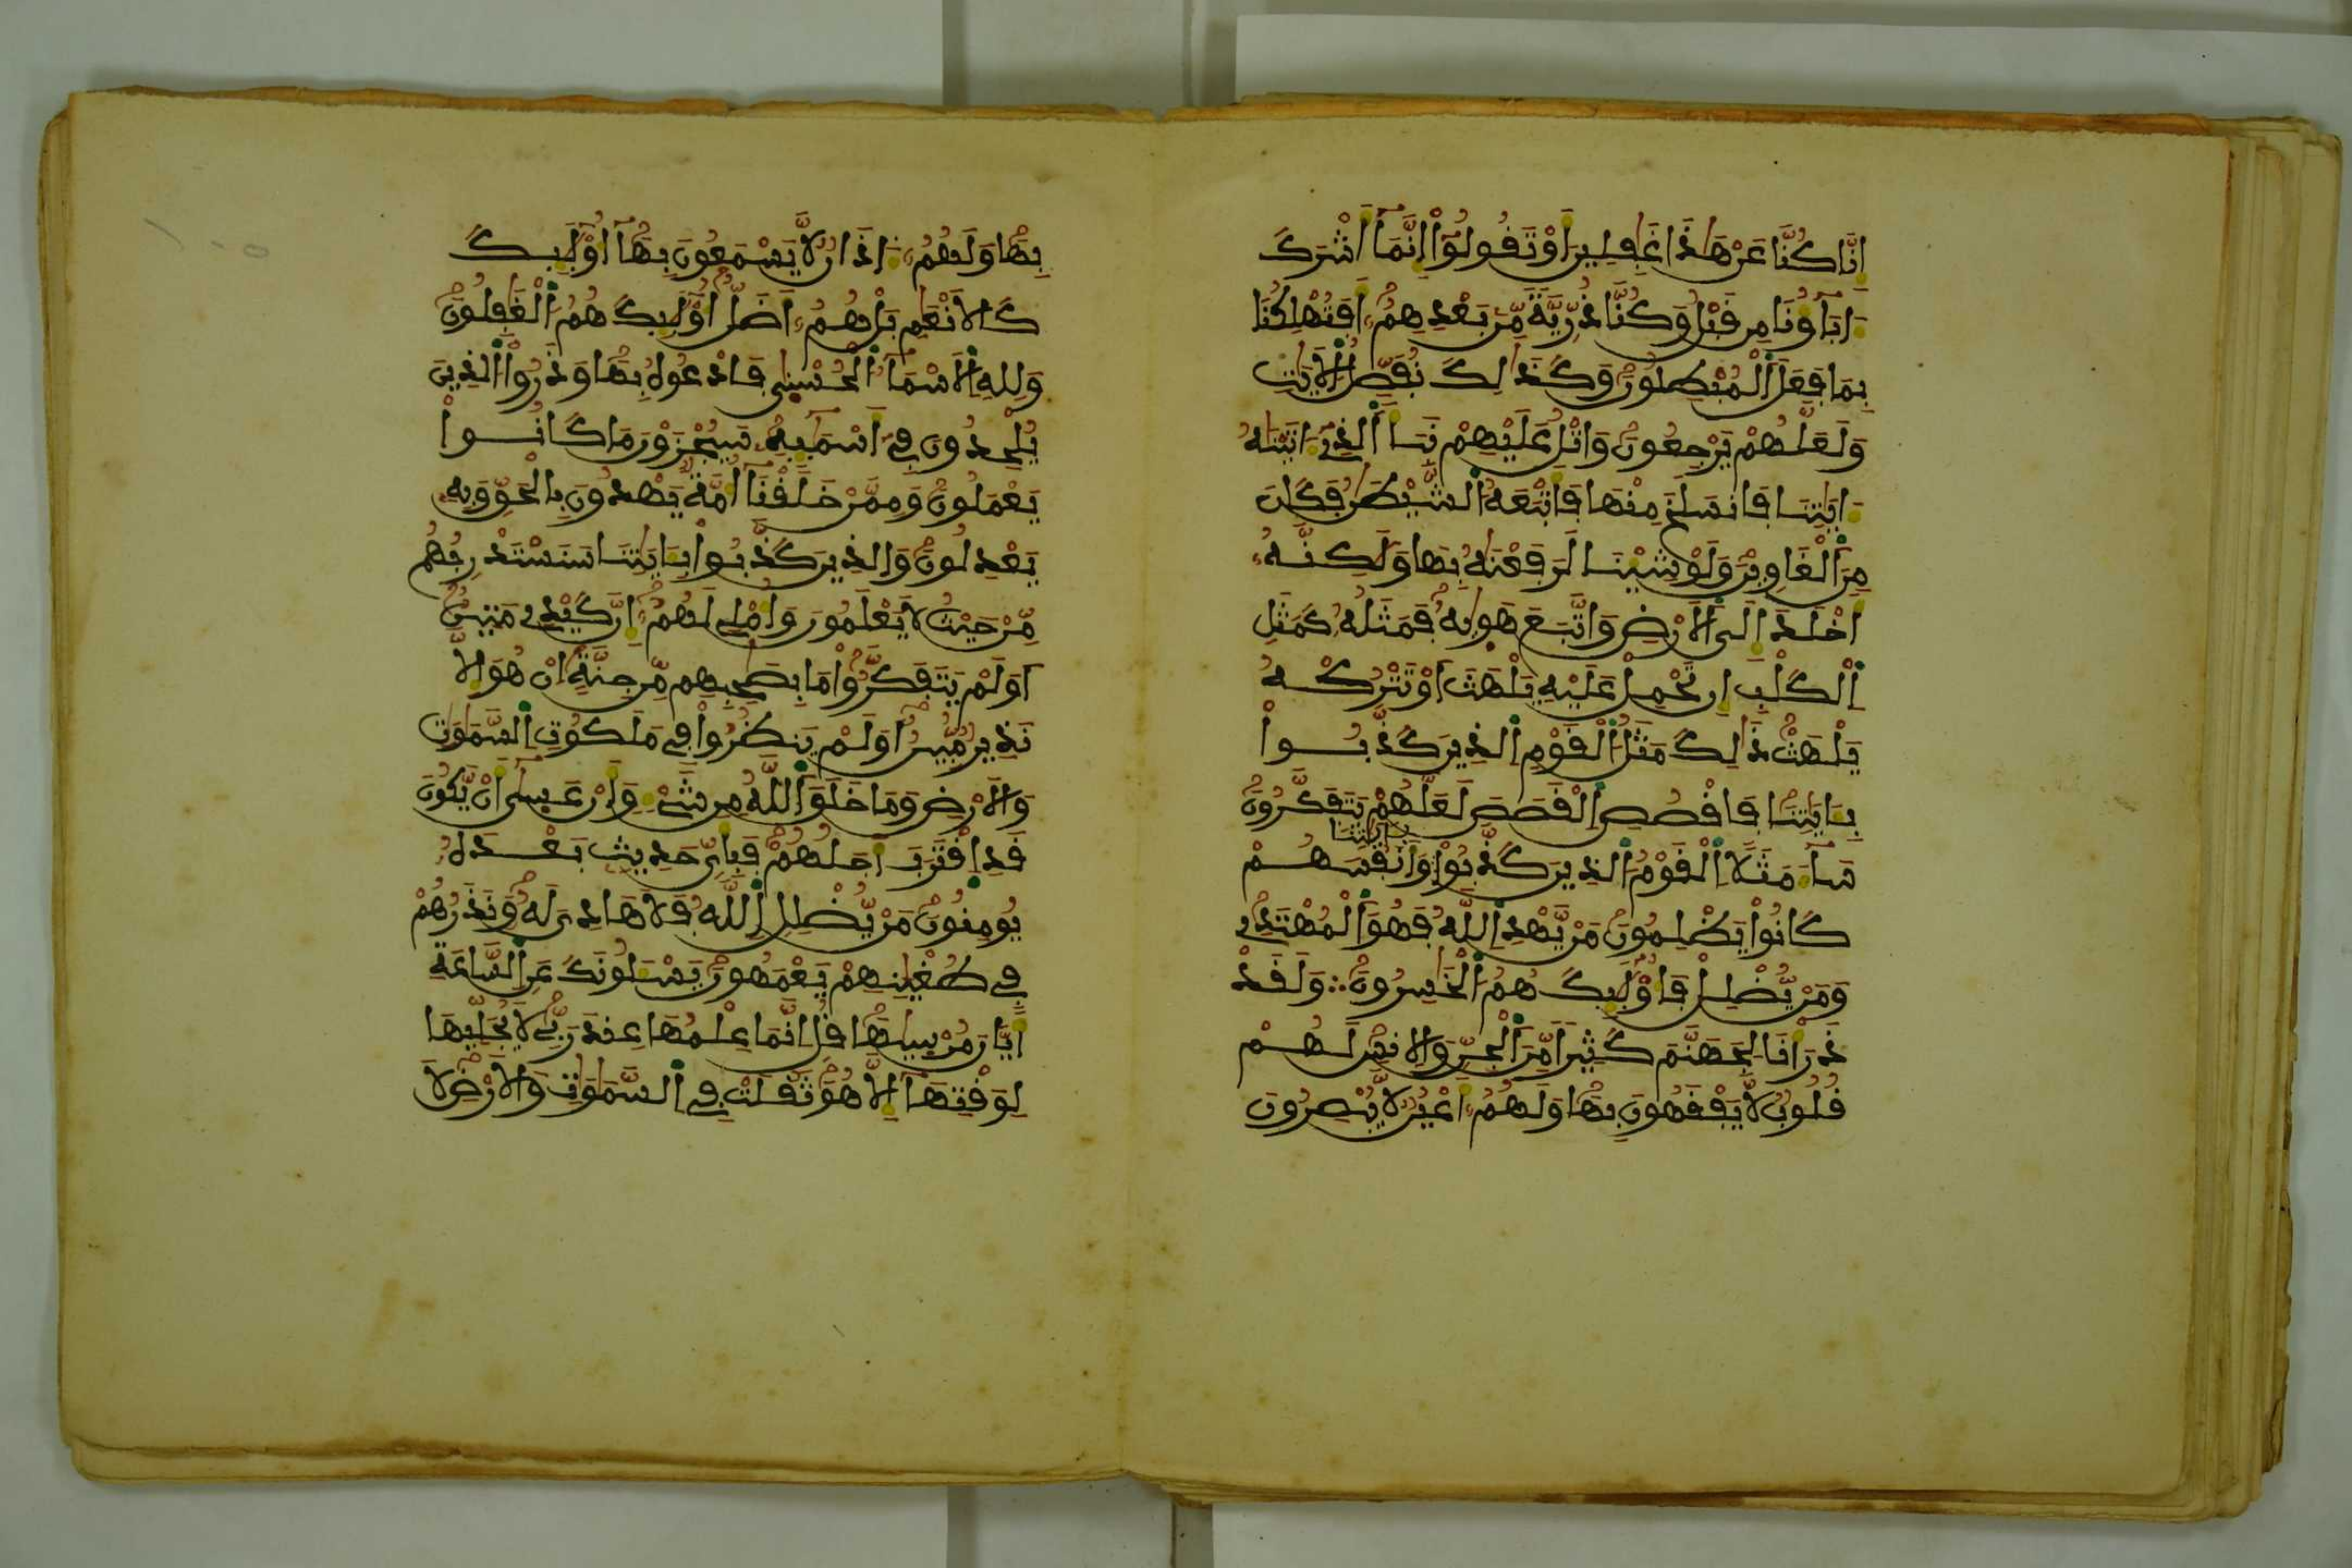 اِنَّا كُنَّا عَنْ هَٰذَا غَٰفِلِينَ أَوْ تَقُولُوٓاْ إِنَّمَآ أَشْرَكَ
ءَابَآؤُنَا مِن قَبْلُ وَكُنَّا ذُرِّيَّةً مِّنۢ بَعْدِهِمُۥٓ أَفَتُهْلِكُنَا
بِمَا فَعَلَ ٱلْمُبْطِلُونَ وَكَذَٰلِكَ نُفَصِّلُ ٱلْأَيَٰتِ
وَلَعَلَّهُمْ يَرْجِعُونَ وَاتْلُ عَلَيْهِمْ نَبَأَ ٱلَّذِىٓ ءَاتَيْنَٰهُ
ءَايَٰتِنَا فَانسَلَخَ مِنْهَا فَأَتْبَعَهُ ٱلشَّيْطَٰنُ فَكَانَ
مِنَ ٱلْغَاوِينَ وَلَوْ شِيْنَا لَرَفَعْنَٰهُ بِهَا وَلَٰكِنَّهُۥٓ
أَخْلَدَ إِلَى ٱلْأَرْضِ وَاتَّبَعَ هَوٰيهُ فَمَثَلُهُۥ كَمَثَلِ
ٱلْكَلْبِ إِن تَحْمِلْ عَلَيْهِ يَلْهَثَ أَوْ تَتْرُكْهُ
يَلْهَثْ ذَٰلِكَ مَثَلُ ٱلْقَوْمِ ٱلَّذِينَ كَذَّبُواْ
بِـَٔايَٰتِنَا فَاقْصُصِ ٱلْقَصَصَ لَعَلَّهُمْ يَتَفَكَّرُونَ
سَآءَ مَثَلًا ٱلْقَوْمُ ٱلَّذِينَ كَذَّبُواْ بِـَٔايَٰتِنَا وَأَنفُسَهُمْ
كَانُواْ يَظْلِمُونَ مَنْ يَّهْدِ ٱللَّهُ فَهُوَ ٱلْمُهْتَدِى
وَمَنْ يُّضْلِلْ فَأُوْلَٰٓئِكَ هُمُ ٱلْخَٰسِرُونَ ۞ وَلَقَدْ
ذَرَأْنَا لِجَهَنَّمَ كَثِيرًا مِّنَ ٱلْجِنِّ وَالْإِنسِ لَهُمْ
قُلُوبٌ لَّا يَفْقَهُونَ بِهَا وَلَهُمُۥٓ أَعْيُنٌ لَّا يُبْصِرُونَ
بِهَا وَلَهُمُۥٓ ءَاذَانٌ لَّا يَسْمَعُونَ بِهَآ أُوْلَٰٓئِكَ
كَالْأَنْعَٰمِ بَلْ هُمُۥٓ أَضَلُّ أُوْلَٰٓئِكَ هُمُ ٱلْغَٰفِلُونَ
وَلِلهِ ٱلْأَسْمَآءُ ٱلْحُسْنَىٰ فَادْعُوهُ بِهَا وَذَرُواْ ٱلَّذِينَ
يُلْحِدُونَ فِىٓ أَسْمَٰٓئِهِۦ سَيُجْزَوْنَ مَا كَانُواْ
يَعْمَلُونَ وَمِمَّنْ خَلَقْنَآ أُمَّةٌ يَهْدُونَ بِالْحَقِّ وَبِهِۦ
يَعْدِلُونَ وَالَّذِينَ كَذَّبُواْ بِـَٔايَٰتِنَا سَنَسْتَدْرِجُهُم
مِّنْ حَيْثُ لَا يَعْلَمُونَ وَأُمْلِى لَهُمُۥٓ إِنَّ كَيْدِى مَتِينٌ
أَوَلَمْ يَتَفَكَّرُواْ مَا بِصَٰحِبِهِم مِّن جِنَّةٍ إِنْ هُوَ إِلَّا
نَذِيرٌ مُّبِينٌ أَوَلَمْ يَنظُرُواْ فِى مَلَكُوتِ ٱلسَّمَٰوَٰتِ
وَالْأَرْضِ وَمَا خَلَقَ ٱللَّهُ مِن شَىْءٍ وَأَنْ عَسَىٰٓ أَنْ يَّكُونَ
قَدِ ٱقْتَرَبَ أَجَلُهُمْ فَبِأَىِّ حَدِيثٍ بَعْدَهُۥ
يُومِنُونَ مَنْ يُّضْلِلِ ٱللَّهُ فَلَا هَادِىَ لَهُۥ وَنَذَرُهُمْ
فِى طُغْيَٰنِهِمْ يَعْمَهُونَ يَسْـَٔلُونَكَ عَنِ ٱلسَّاعَةِ
أَيَّانَ مُرْسَيٰهَا قُلْ إِنَّمَا عِلْمُهَا عِندَ رَبِّى لَا يُجَلِّيهَا
لِوَقْتِهَآ إِلَّا هُوَ ثَقُلَتْ فِى ٱلسَّمَٰوَٰتِ وَالْأَرْضِ لَا